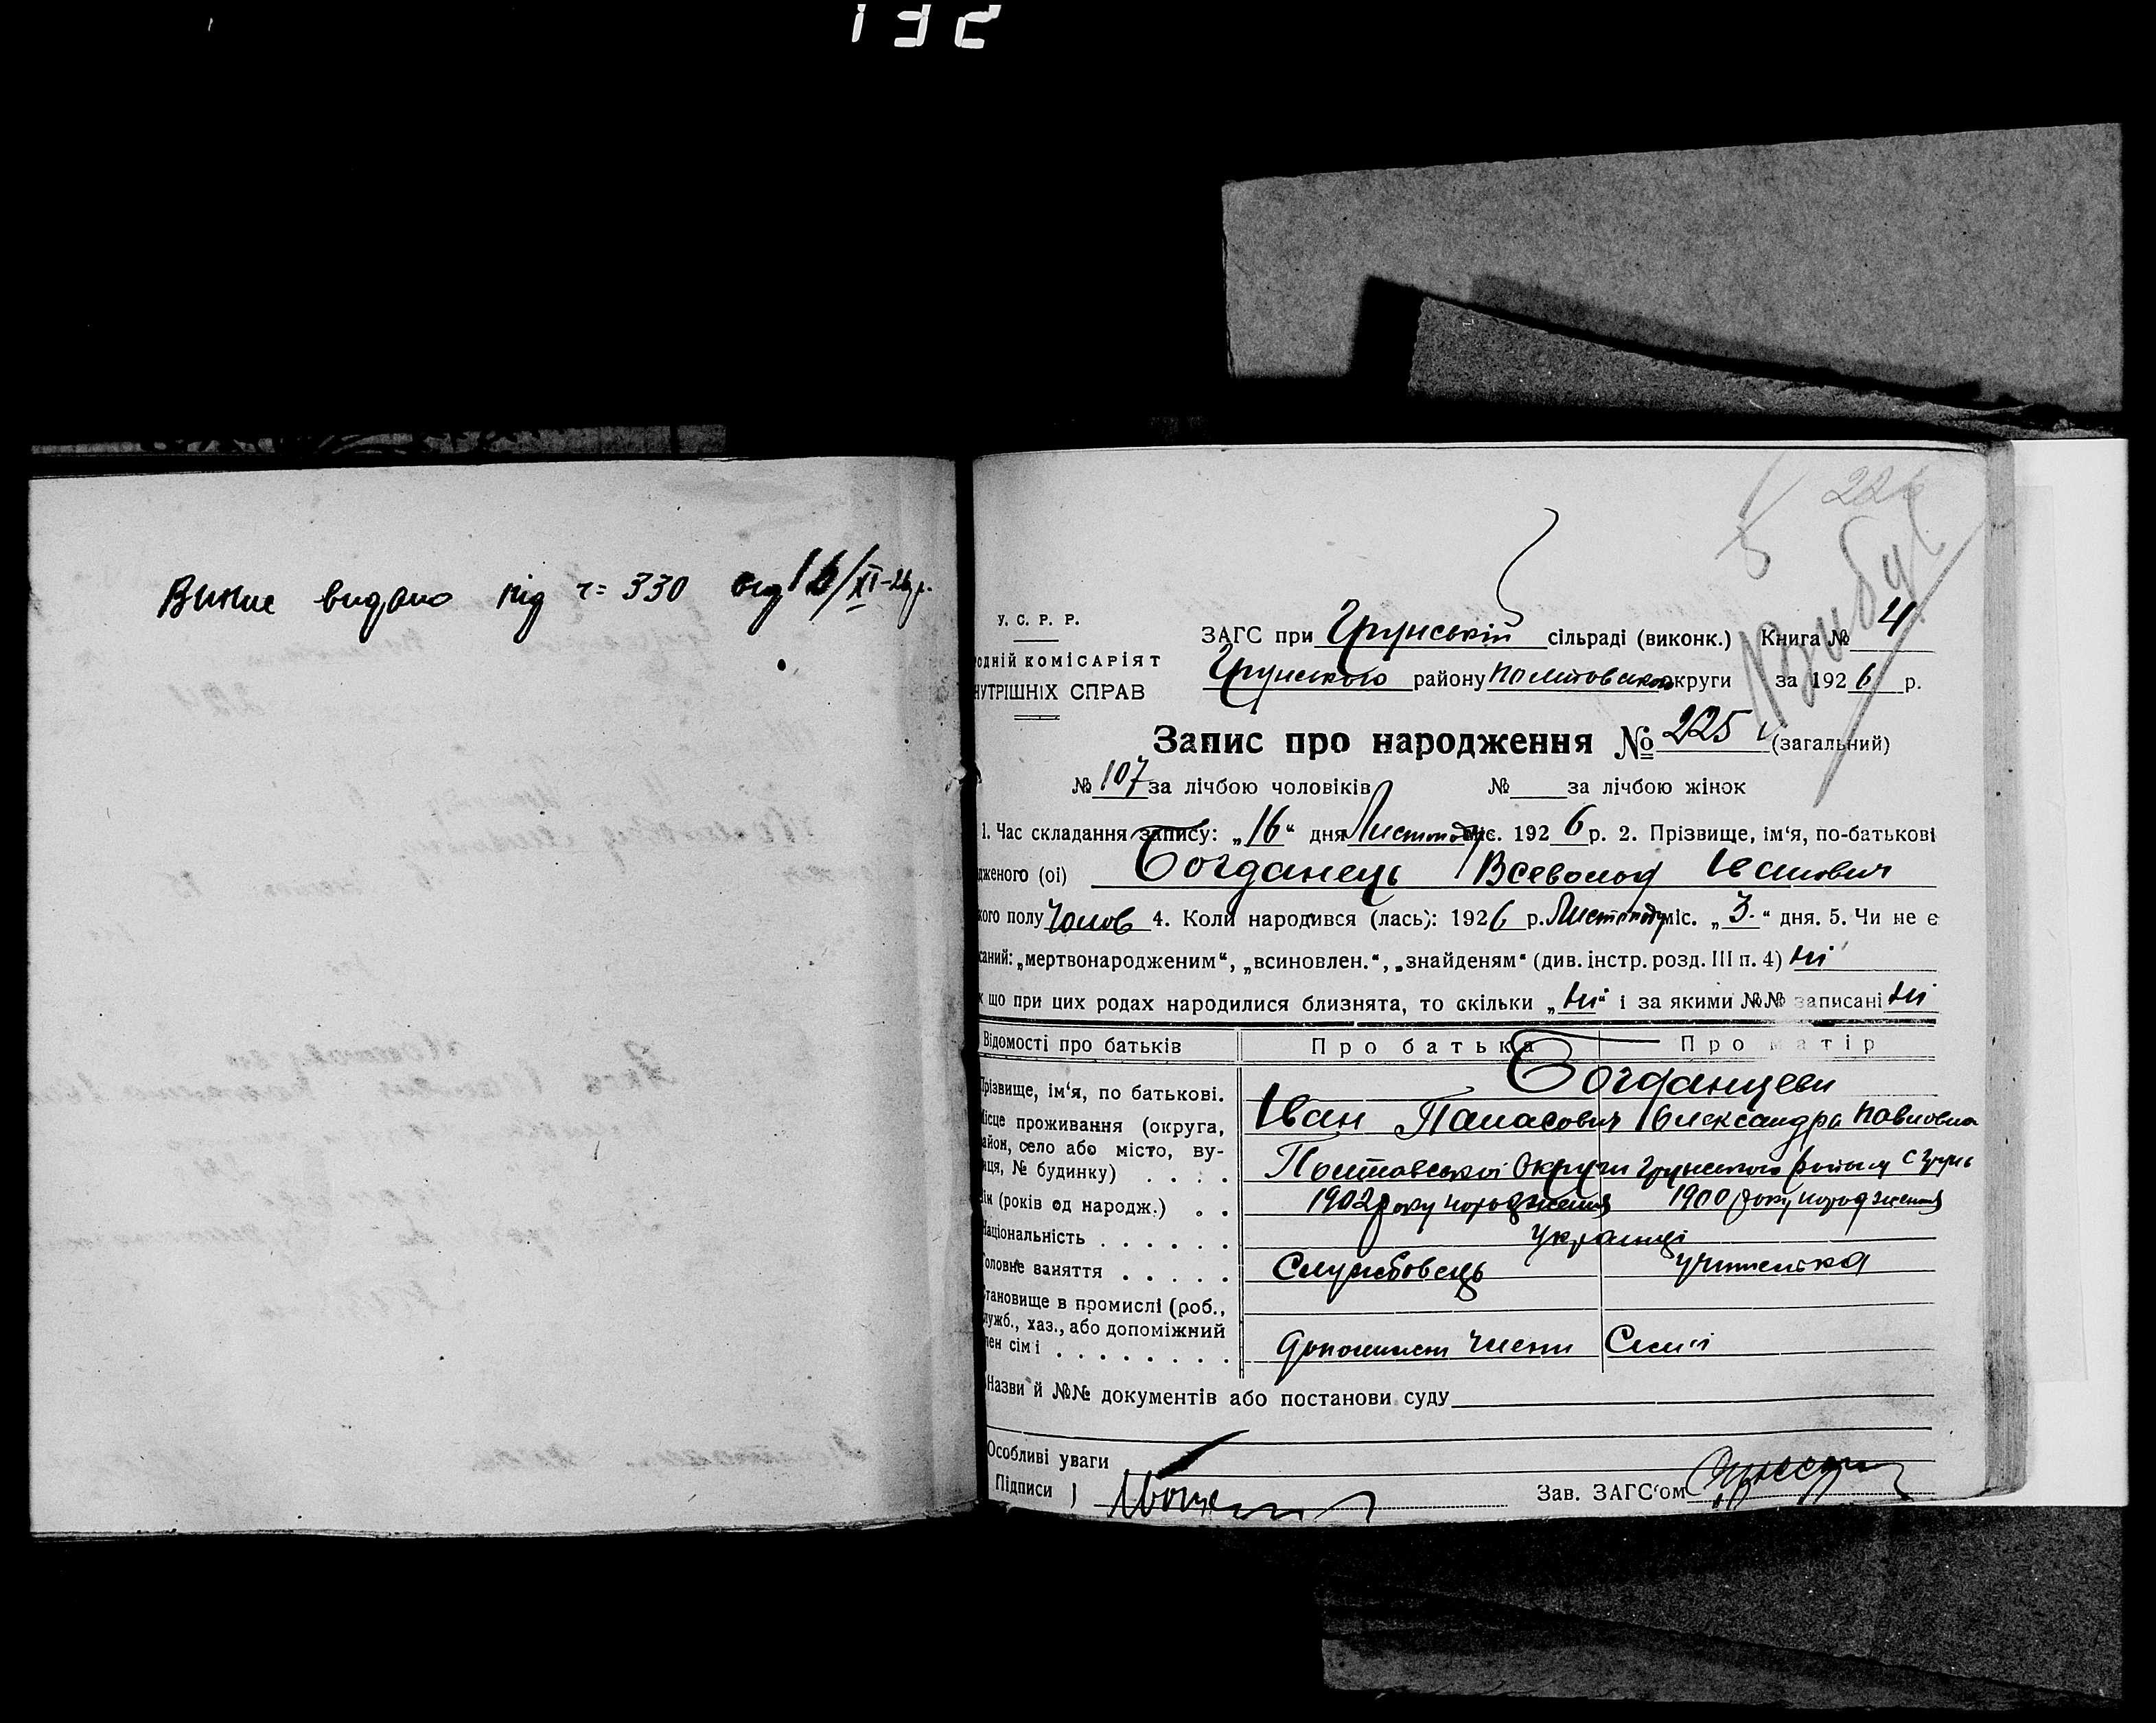 132
Випис видано під ч= 330 від 16/XI-26 р.
226
У. С. Р. Р.
ЗАГС при Грунській сільраді (виконк.) Книга № 4
одній комісаріят
нутрішніх справ
Грунського району Полтавської округи за 1926 р.
Запис про народження № 225 (загальний)
№ 107 за лічбою чоловіків № за лічбою жінок
1. Час складання запису: „16“ дня Листопаду міс. 1926 р. 2. Прізвище, ім‘я, по-батькові
дженого (ої) Богданець Всеволод Іванович
кого полу Чолов 4. Коли народився (лась): 1926 р. Листопаду міс. „3.“ дня. 5. Чи не є
саний: „мертвонародженим“, „всиновлен.“, „знайденям“ (див. інстр. розд. III п. 4) ні
к що при цих родах народилися близнята, то скільки „ні“ і за якими №№ записані ні
Відомості про батьків Про батька Про матір
Прізвище, ім‘я, по батькові. Богданцеви
Іван Панасович Олександра Павловна
Місце проживання (округа,
район, село або місто, ву-
лиця, № будинку) . . . . Полтавської Округи Грунського району с Грунь
Вік (років од народж.) . . 1902 року народження 1900 року народження
Національність . . . . . . Українці
Головне заняття . . . . . Службовець учителька
Становище в промислі (роб.,
служб., хаз., або допоміжний
член сім‘ї . . . . . . . . члени Сем‘ї
Назви й №№ документів або постанови суду
Особливі уваги
Підписи Зав. ЗАГС‘ом